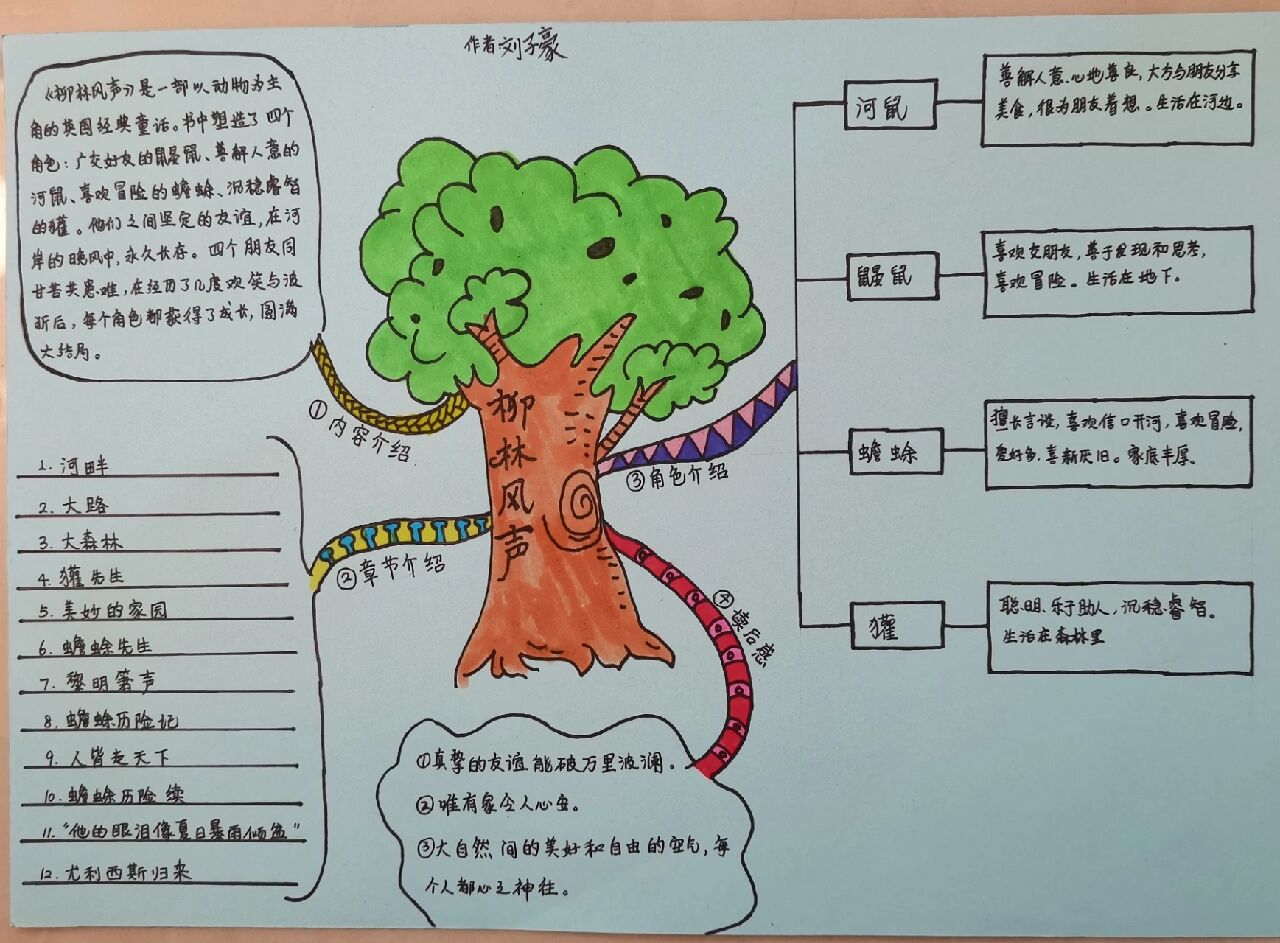 作者刘子豪
《柳林风声》是一部以动物为主
角的英国经典童话。书中塑造了四个
角色:广交好友的鼹鼠、善解人意的
河鼠、喜欢冒险的蟾蜍、沉稳睿智
的獾。他们之间坚定的友谊,在河
岸的晚风中,永久长存。四个朋友同
甘苦共患难,在经历了几度欢笑与波
折后,每个角色都获得了成长,圆满
大结局。
①内容介绍
柳林风声
②章节介绍
1. 河畔
2. 大路
3. 大森林
4. 獾先生
5. 美妙的家园
6. 蟾蜍先生
7. 黎明笛声
8. 蟾蜍历险记
9. 人皆走天下
10. 蟾蜍历险 续
11. “他的眼泪像夏日暴雨倾盆”
12. 尤利西斯归来
③角色介绍
河鼠
善解人意、心地善良,大方与朋友分享
美食,很为朋友着想。生活在河边。
鼹鼠
喜欢交朋友,善于发现和思考,
喜欢冒险。生活在地下。
蟾蜍
擅长言谈,喜欢信口开河,喜欢冒险,
爱好多,喜新厌旧。家底丰厚。
獾
聪明、乐于助人,沉稳、睿智。
生活在森林里
④读后感
①真挚的友谊能破万里波澜。
②唯有家令人心安。
③大自然间的美好和自由的空气,每
个人都心之神往。